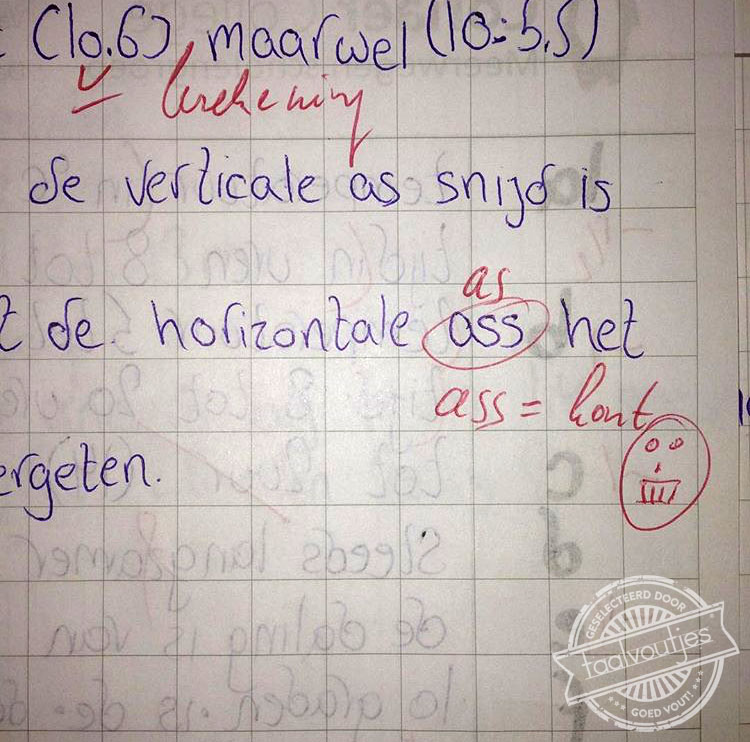 (10.6), maar wel (10:5,5)
berekening
de verticale as snijd is
as
t de horizontale ass het
ass = kont
ergeten.
GESELECTEERD DOOR
taalvoutjes
GOED VOUT!